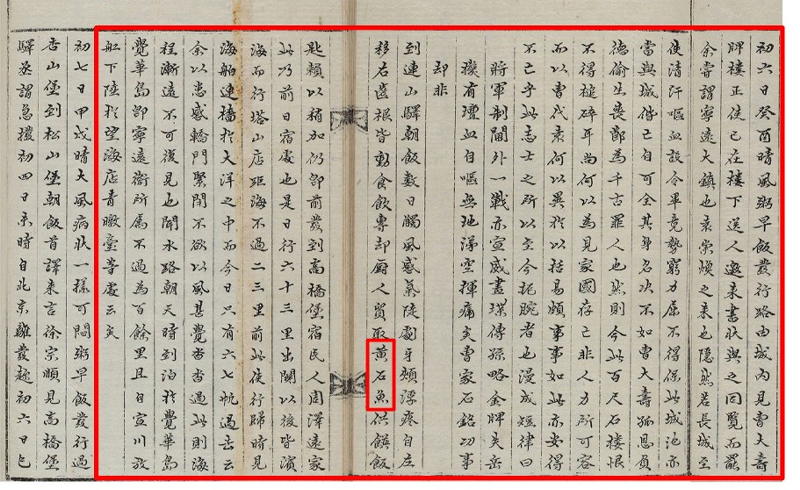 初六日癸酉晴風粥早飯發行路由城內見曹大壽
牌樓正使已在樓下送人邀來書狀與之同覽而罷
余嘗謂寧遠大鎮也袁崇煥之來也隱然若長城至
使清汗嘔血設令軍竞勢窮力屈不得保此城池亦
當與城偕亡自可全其身名次不如曹大壽孤恩負
德偷生喪節為千古罪人也然則今此百尺石樓恨
不得槌碎耳尚何以為見家國存亡非人力所可容
而以曹代袁何以異於以括易頗事事如此亦安得
不亡乎此志士之所以至今扼腕者也漫成短律曰
將軍制閫外一戰亦宣威盡傳孫略金牌失岳
機有壇血自嘔無地淚空揮痛矣曹家石銘功事
却非
到連山驛朝飯數日觸風感氣陡劇牙頰浮疼自左
移右齒根皆動食飲專却廚人貿取黃石魚供饌飯
匙賴以稍加仍卽前發到高橋堡宿民人周澤遠家
此乃前日宿處也是日行六十三里出關以後皆濱
海而行塔山店距海不過二三里前此使行歸時見
海舶連檣於大洋之中而今日只有六七帆過去云
余以患感輪門緊閉不欲以風甚覺沓沓過此則海
程漸遠不可復見也聞水路朝天時到泊於覺華島
覺華島卽寧遠衛所屬不過為百餘里且自宣川放
船下陸於望海店青墩臺等處云矣
初七日甲戌晴大風病狀一樣可悶粥早飯發行過
杏山堡到松山堡朝飯首譯來言徐宗順見高橋堡
驛丞謂急撥初四日亥時自北京離發趁初六日巳